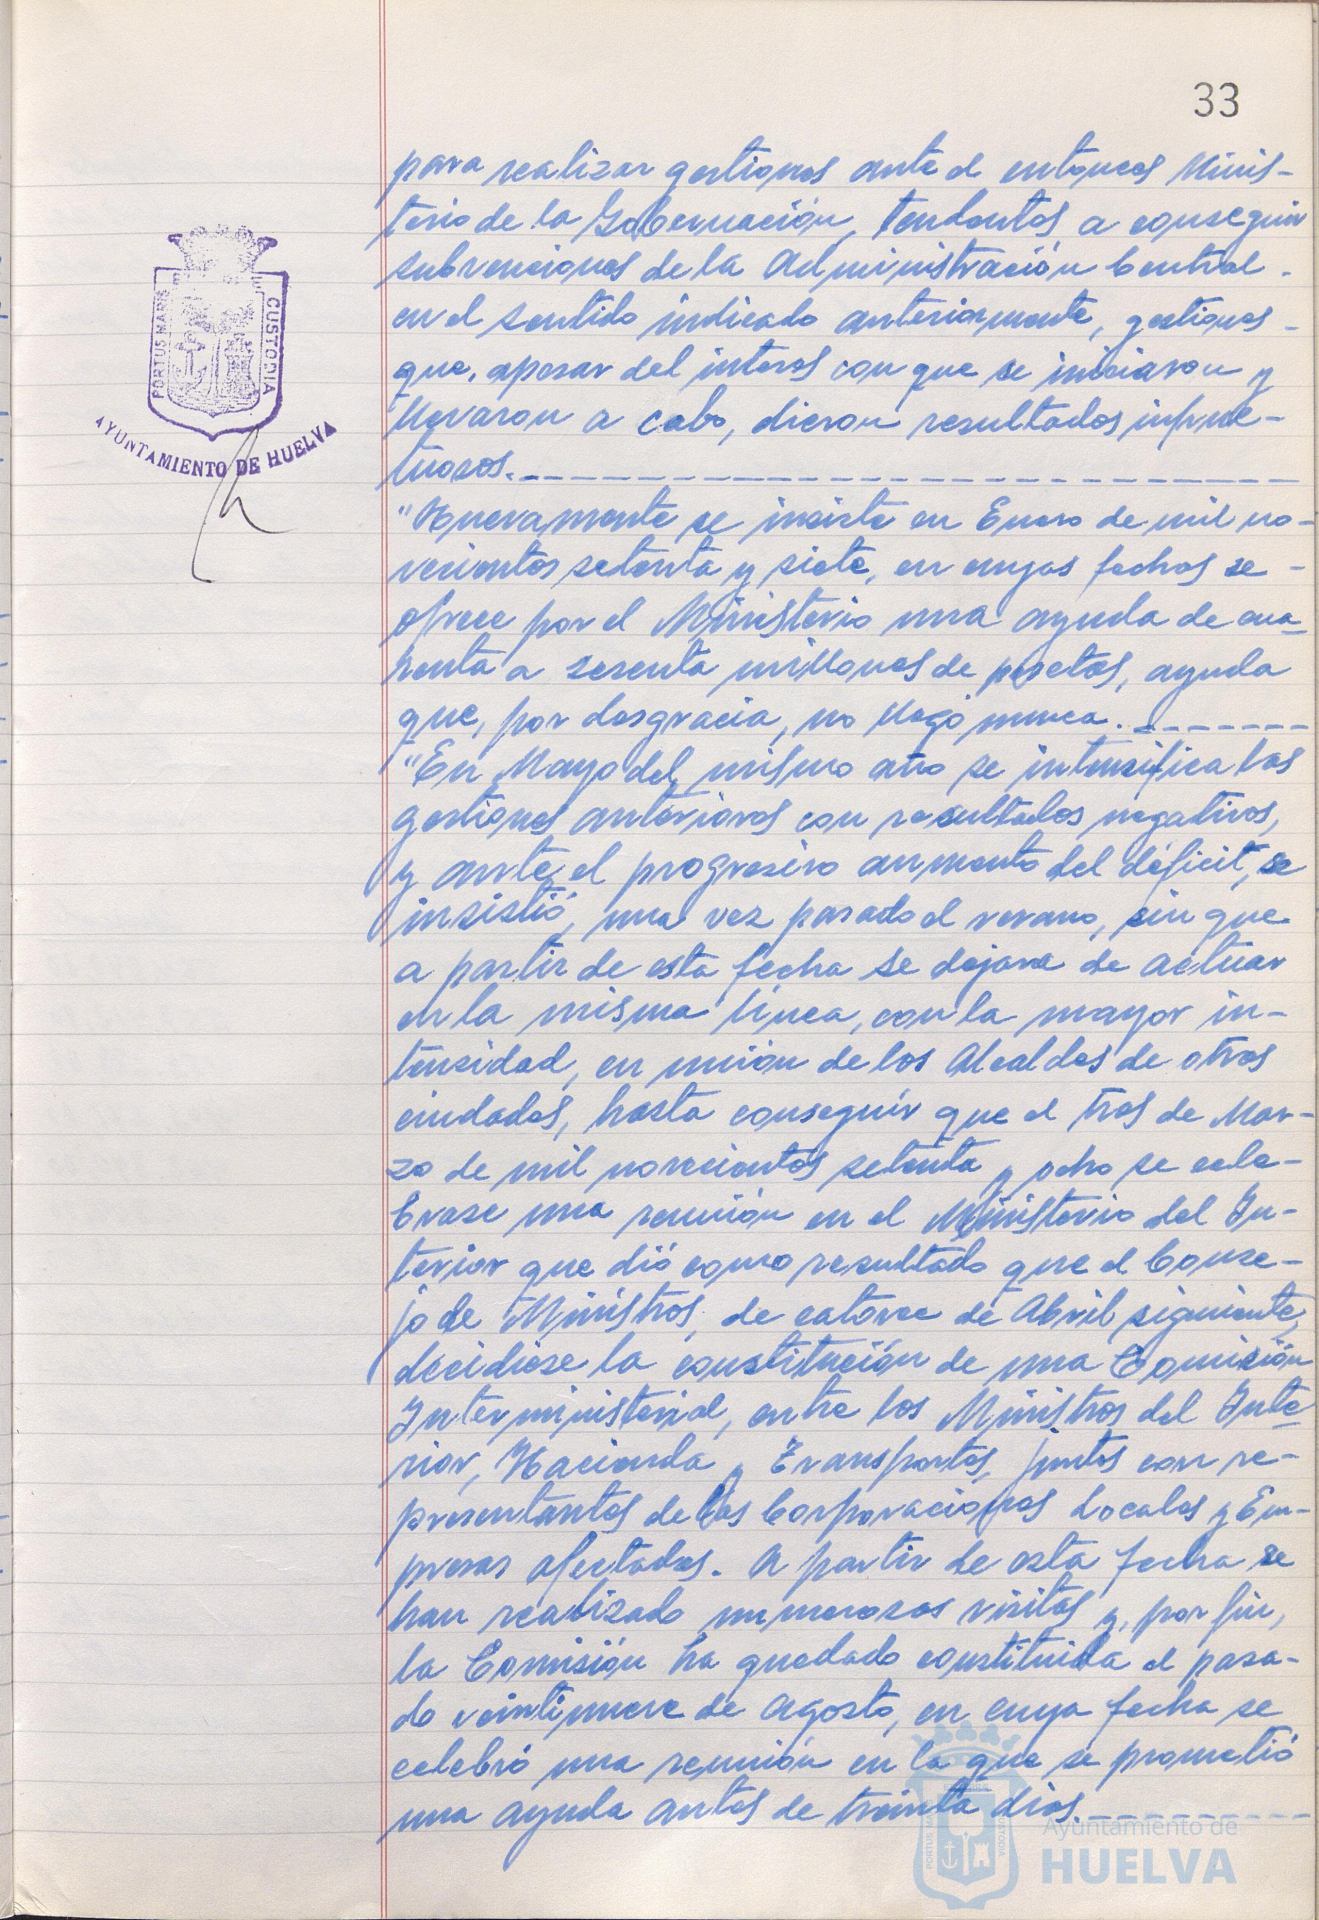 33
para realizar gestiones ante el entonces Minis-
terio de la Gobernación, tendentes a conseguir
subvenciones de la Administración Central
en el sentido indicado anteriormente, gestiones
que, apesar del interes con que se iniciaron y
llevaron a cabo, dieron resultados infruc-
tuosos.
"Nuevamente se insiste en Enero de mil no-
vecientos setenta y siete, en cuyas fechas se
ofrece por el Ministerio una ayuda de cua-
renta a sesenta millones de pesetas, ayuda
que, por desgracia, no llegó nunca.
"En Mayo del mismo año se intensifica las
gestiones anteriores con resultados negativos,
y ante el progresivo aumento del déficit, se
insistió, una vez pasado el verano, sin que
a partir de esta fecha se dejara de actuar
en la misma línea, con la mayor in-
tensidad, en unión de los Alcaldes de otras
ciudades, hasta conseguir que el tres de Mar-
zo de mil novecientos setenta y ocho se cele-
brase una reunión en el Ministerio del In-
terior que dió como resultado que el Conse-
jo de Ministros, de catorce de Abril siguiente,
decidiese la constitución de una Comisión
Interministerial, entre los Ministros del Inte-
rior, Hacienda y Transportes, juntos con re-
presentantes de las Corporaciones Locales y Em-
presas afectadas. A partir de esta fecha se
han realizado numerosas visitas y, por fin,
la Comisión ha quedado constituida el pasa-
do veintinueve de Agosto, en cuya fecha se
celebró una reunión en la que se prometió
una ayuda antes de treinta días.
PORTUS MARIS CUSTODIA
AYUNTAMIENTO DE HUELVA
PORTUS MARIS CUSTODIA
Ayuntamiento de
HUELVA